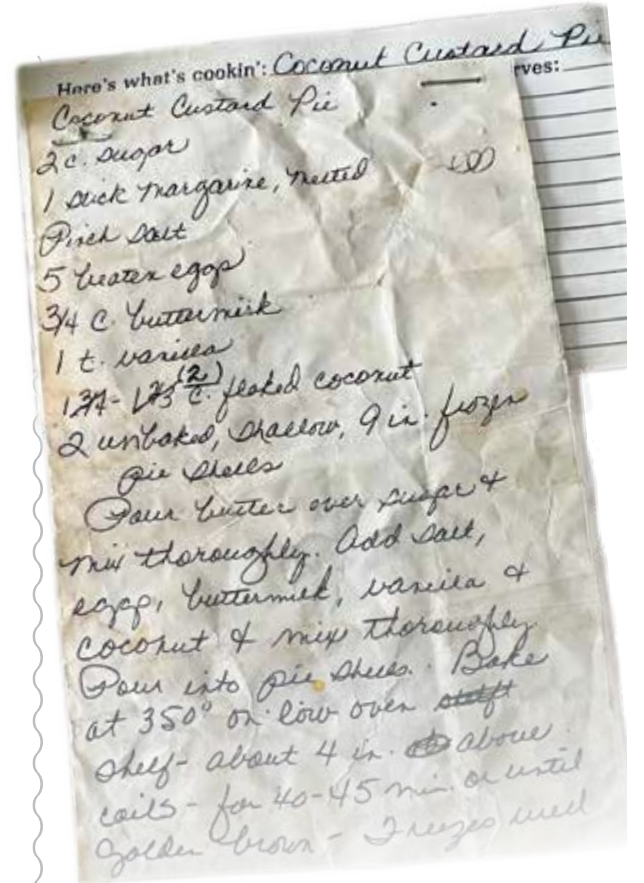 Here's what's cookin': Coconut Custard Pie
rves:
Coconut Custard Pie
2 c. sugar
1 stick margarine, melted
Pinch salt
5 beaten eggs
3/4 c. buttermilk
1 t. vanilla
(2)
c. flaked coconut
2 unbaked, shallow, 9 in. frozen
pie shells
Pour butter over sugar &
mix thoroughly. Add salt,
eggs, buttermilk, vanilla &
coconut & mix thoroughly
Pour into pie shells. Bake
at 350° on low oven
shelf - about 4 in. above
coils - for 40-45 min. or until
golden brown - Freezes well